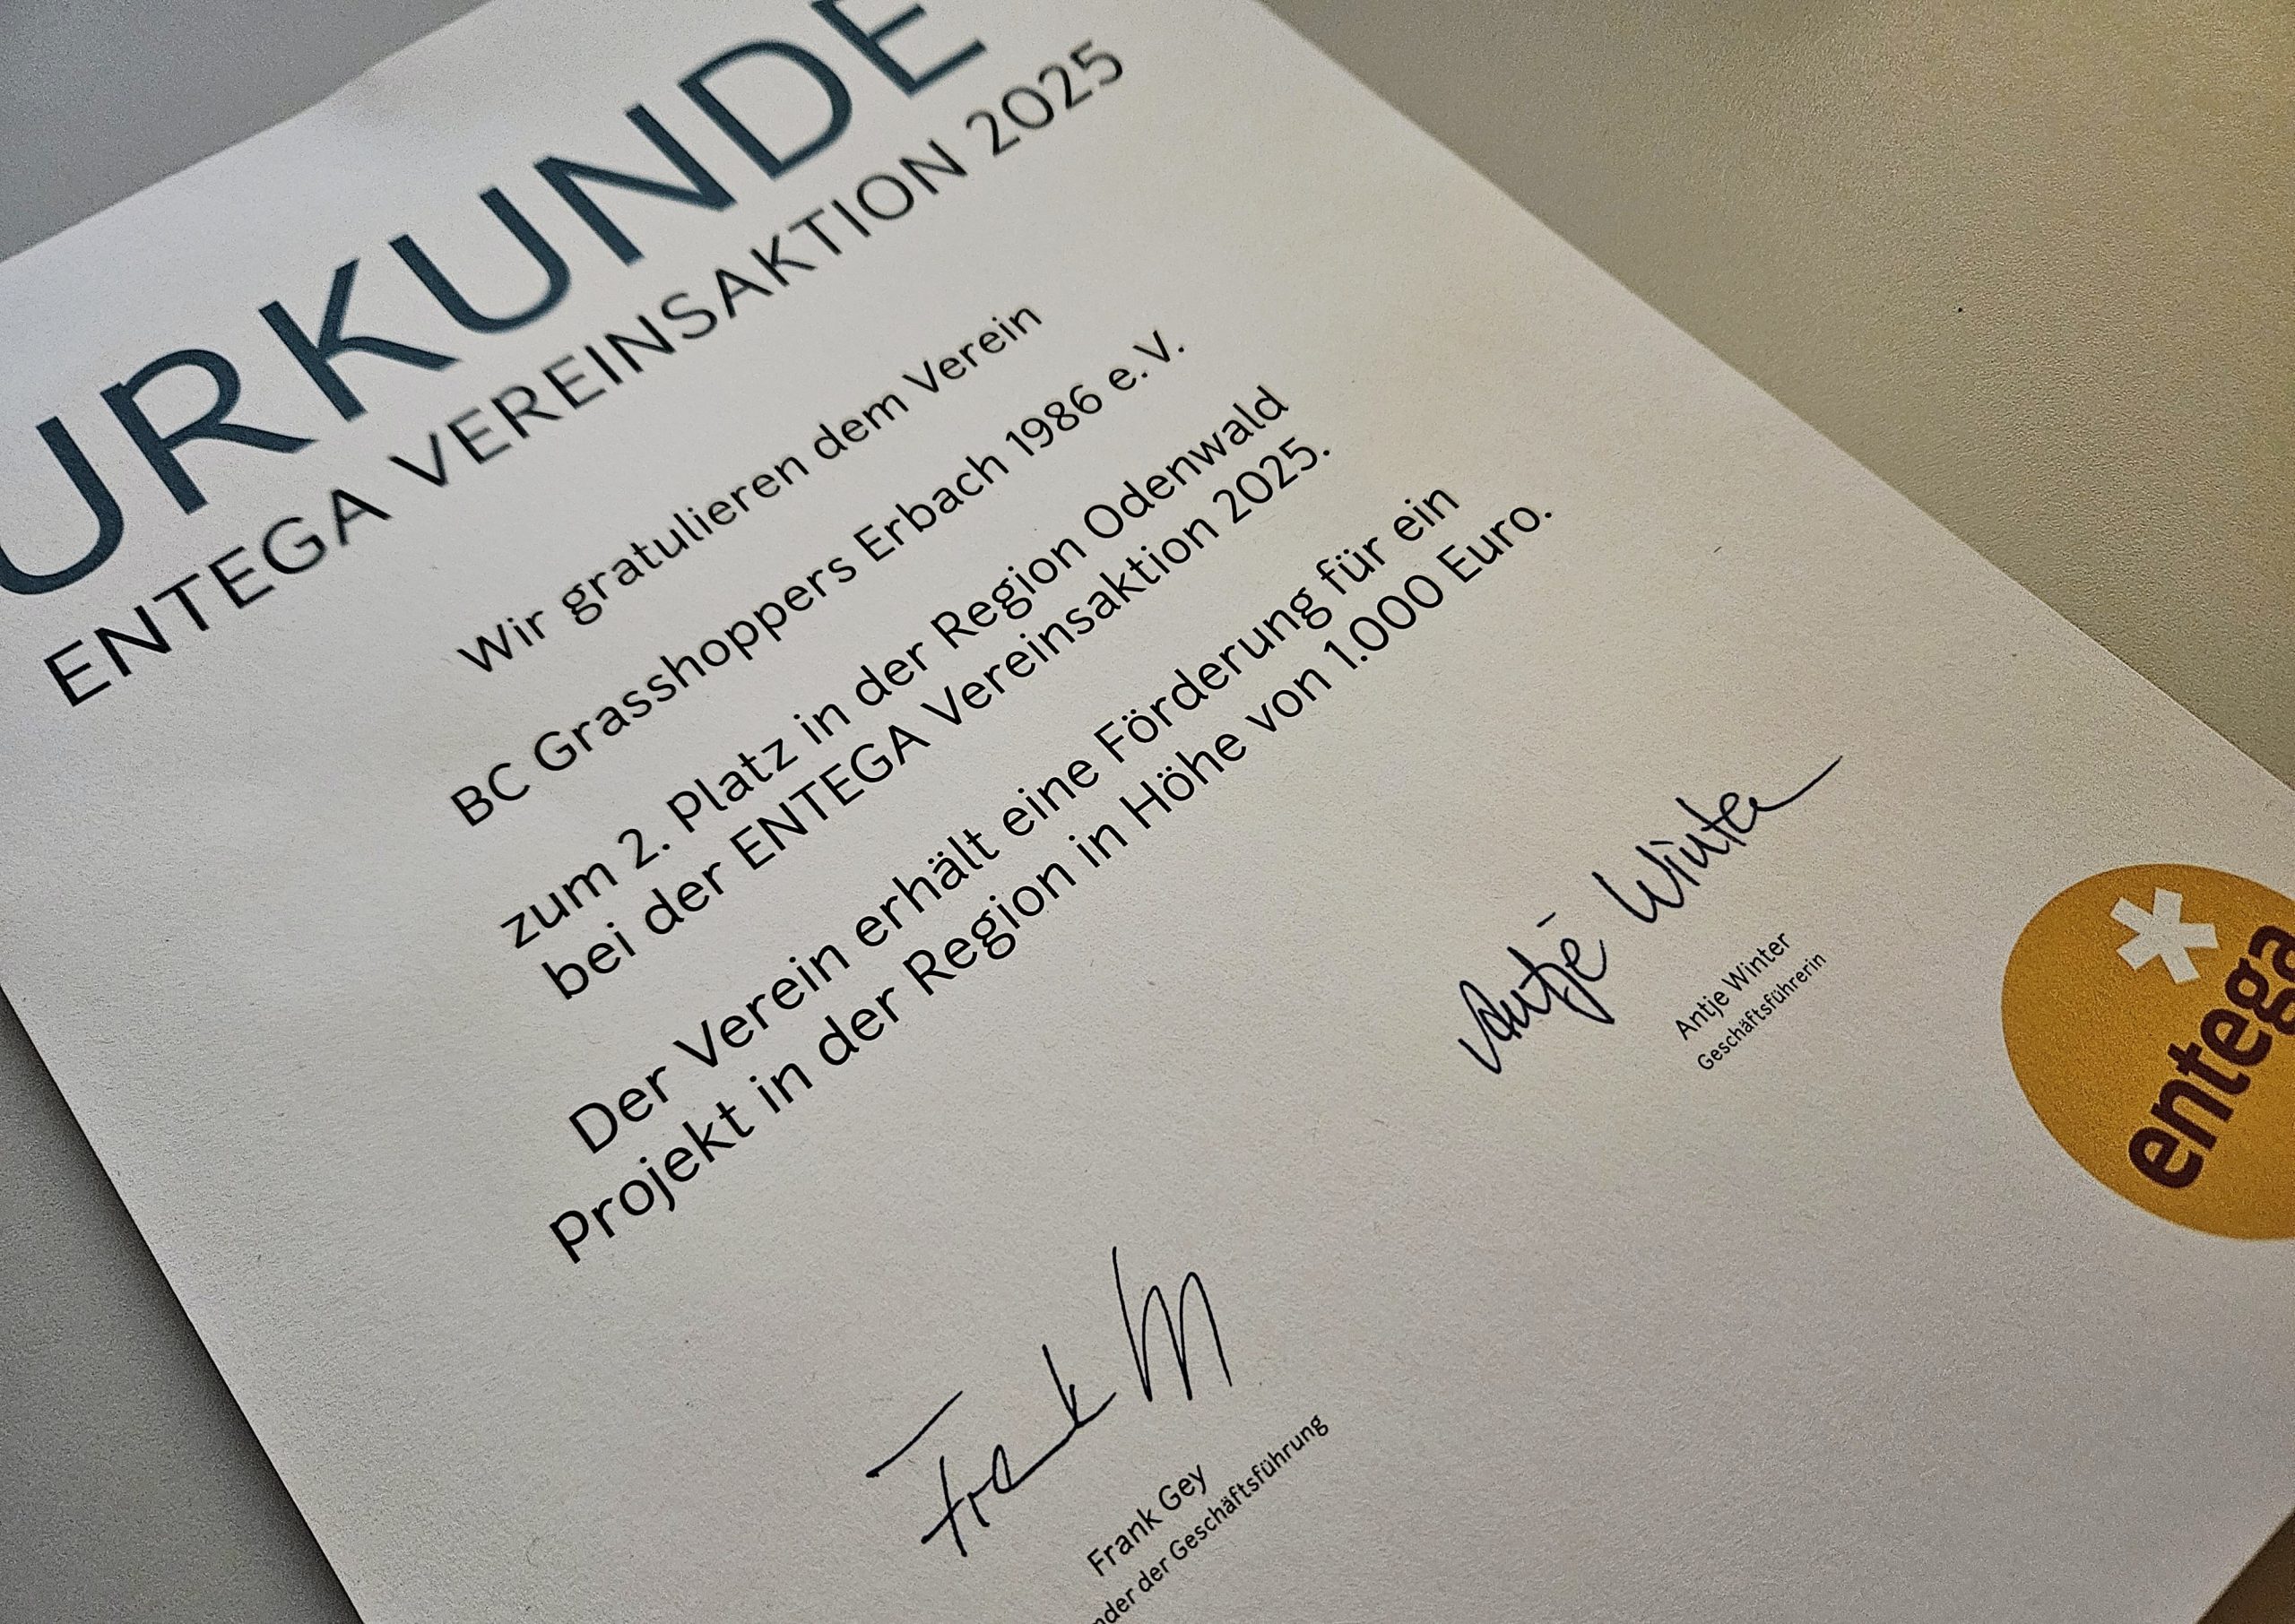 URKUNDE
ENTEGA VEREINSAKTION 2025
Wir gratulieren dem Verein
BC Grasshoppers Erbach 1986 e.V.
zum 2. Platz in der Region Odenwald
bei der ENTEGA Vereinsaktion 2025.
Der Verein erhält eine Förderung für ein
Projekt in der Region in Höhe von 1.000 Euro.
Antje Winter
Antje Winter
Geschäftsführerin
entega
Frank
Frank Gey
der Geschäftsführung